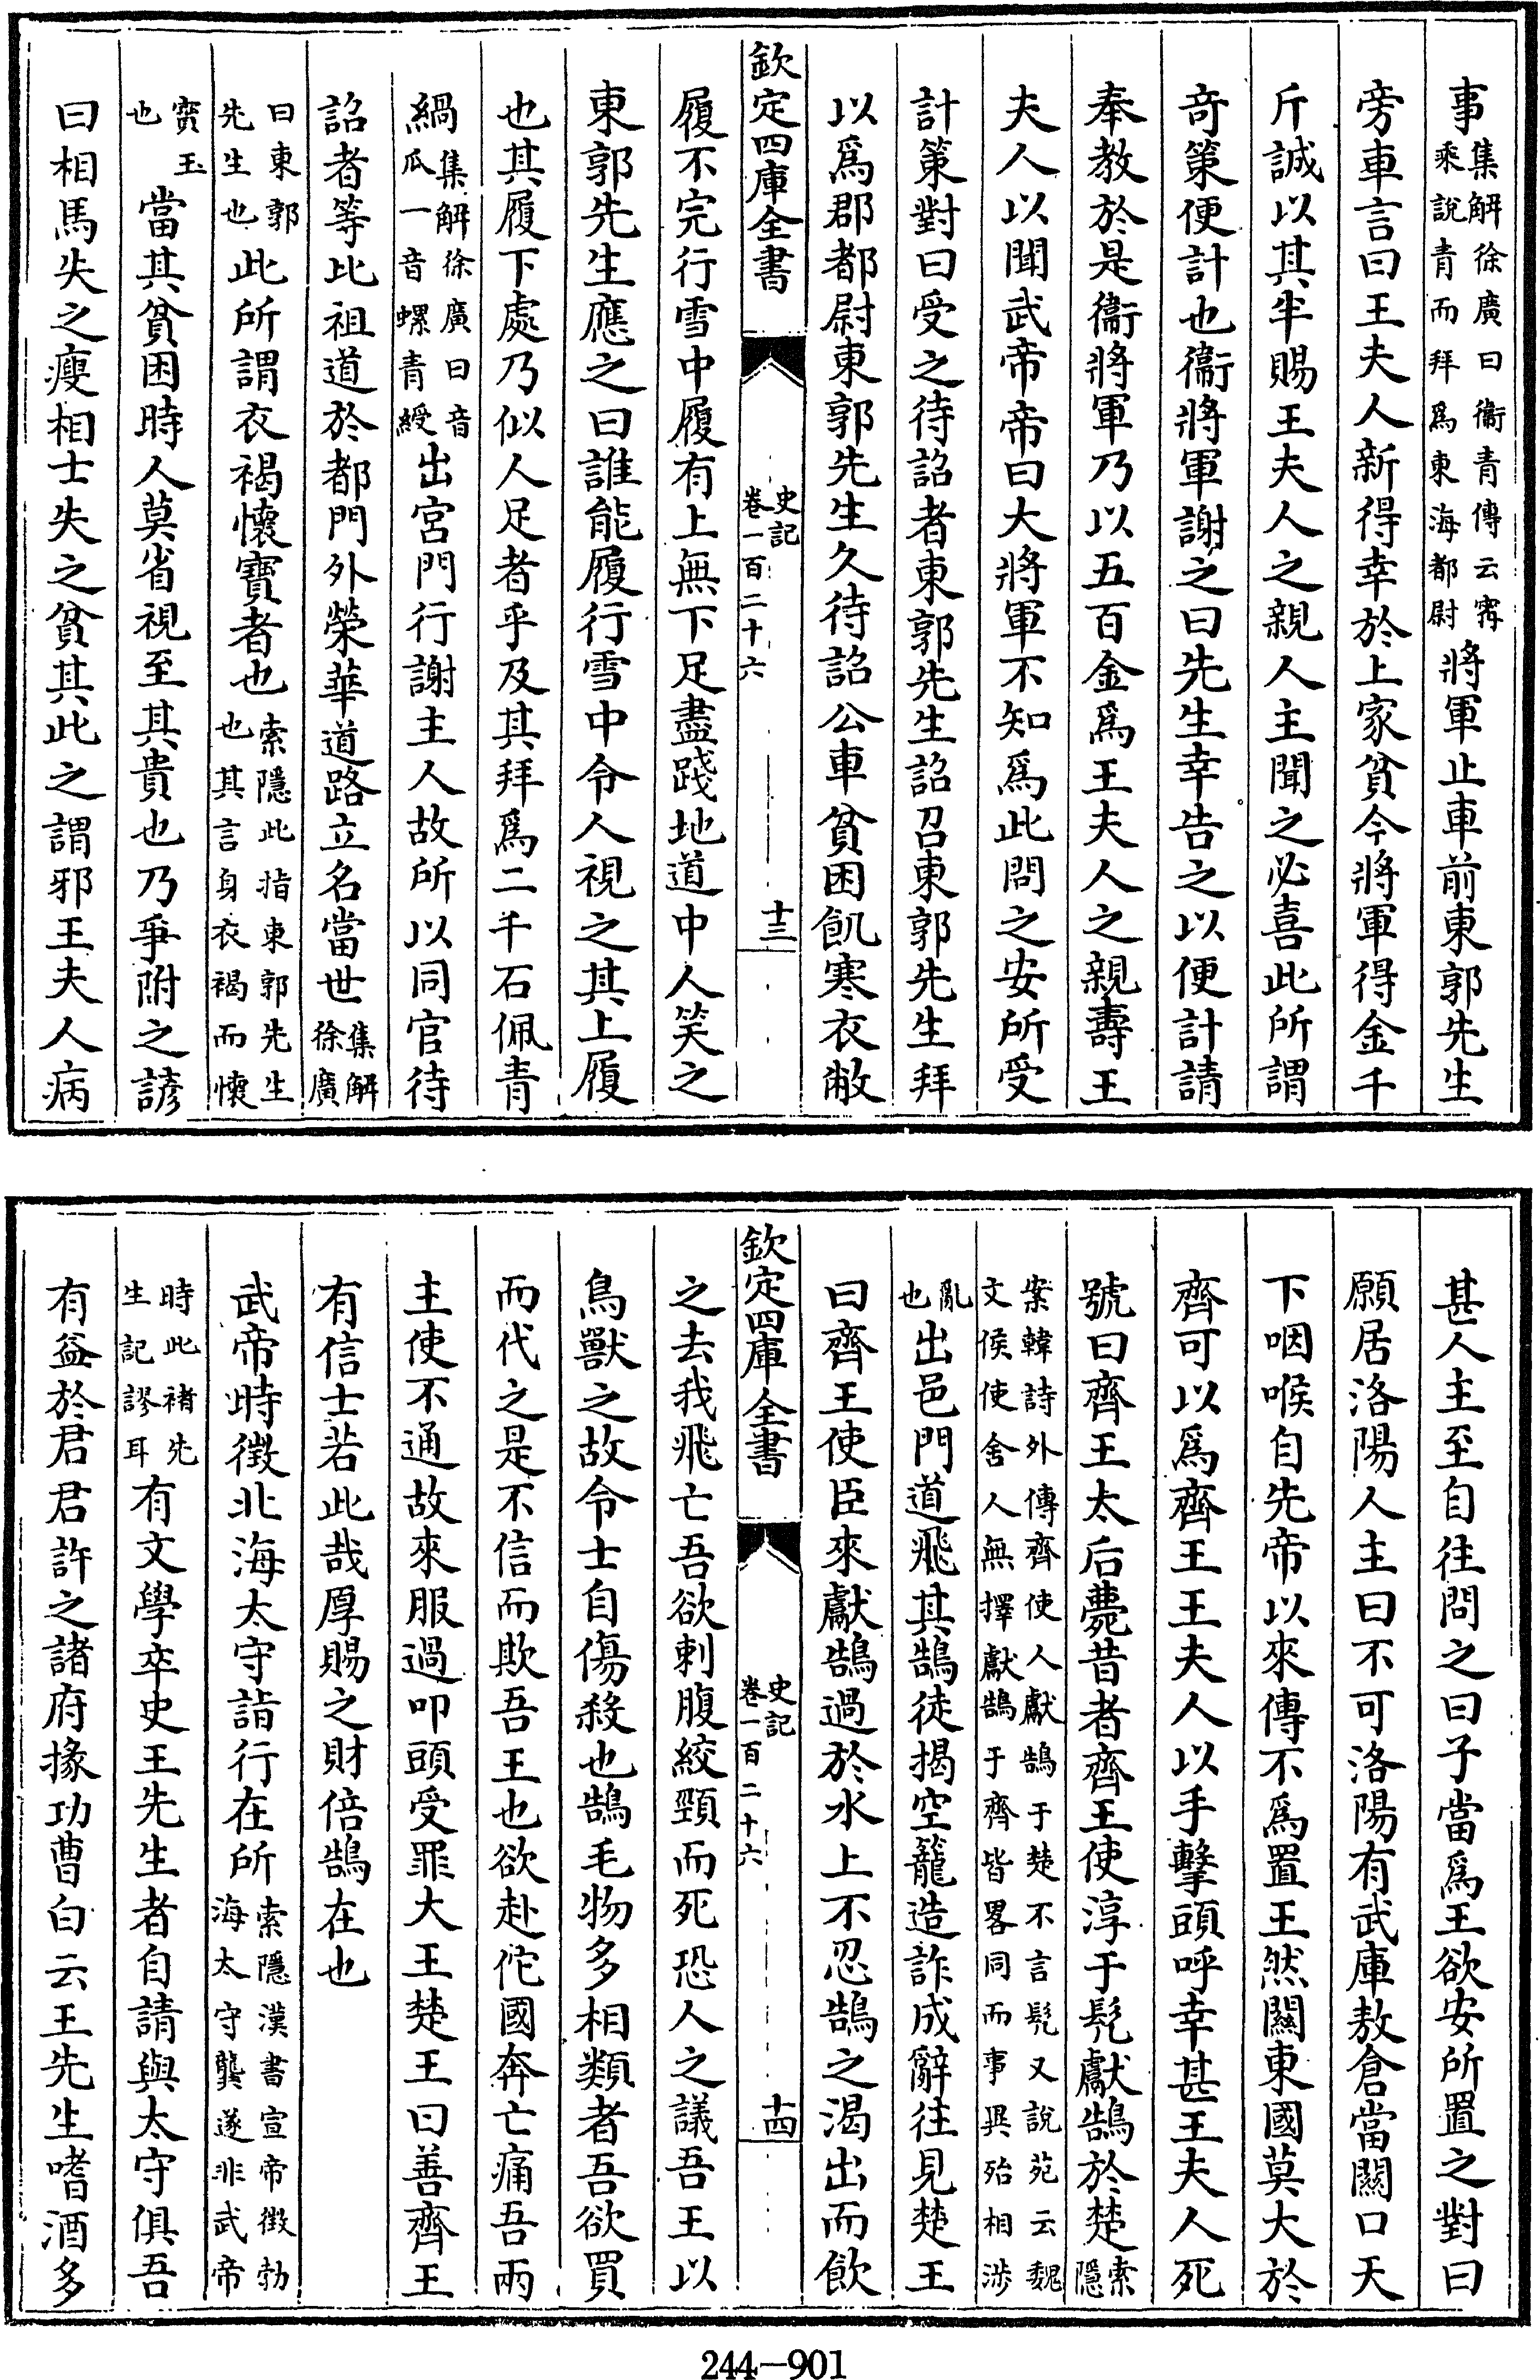 事集解徐廣曰衞青傳云甯乘說青而拜爲東海都尉將軍止車前東郭先生
旁車言曰王夫人新得幸於上家貧今將軍得金千
斤誠以其半賜王夫人之親人主聞之必喜此所謂
奇策便計也衞將軍謝之曰先生幸告之以便計請
奉教於是衞將軍乃以五百金爲王夫人之親壽王
夫人以聞武帝帝曰大將軍不知爲此問之安所受
計策對曰受之待詔者東郭先生詔召東郭先生拜
以爲郡都尉東郭先生久待詔公車貧困飢寒衣敝
欽定四庫全書 史記卷一百二十六 十三
履不完行雪中履有上無下足盡踐地道中人笑之
東郭先生應之曰誰能履行雪中令人視之其上履
也其履下處乃似人足者乎及其拜爲二千石佩青
緺集解徐廣曰音瓜一音螺青綬出宮門行謝主人故所以同官待
詔者等比祖道於都門外榮華道路立名當世集解徐廣
曰東郭先生也此所謂衣褐懷寶者也索隱此指東郭先生也其言身衣褐而懷
寳玉也當其貧困時人莫省視至其貴也乃爭附之諺
曰相馬失之瘦相士失之貧其此之謂邪王夫人病
甚人主至自往問之曰子當爲王欲安所置之對曰
願居洛陽人主曰不可洛陽有武庫敖倉當關口天
下咽喉自先帝以來傳不爲置王然關東國莫大於
齊可以爲齊王王夫人以手擊頭呼幸甚王夫人死
號曰齊王太后薨昔者齊王使淳于髡獻鵠於楚索隱
案韓詩外傳齊使人獻鵠于楚不言髡又說苑云魏文侯使舍人無擇獻鵠于齊皆畧同而事異殆相涉
亂也出邑門道飛其鵠徒揭空籠造詐成辭往見楚王
曰齊王使臣來獻鵠過於水上不忍鵠之渴出而飲
欽定四庫全書 史記卷一百二十六 十四
之去我飛亡吾欲刺腹絞頸而死恐人之議吾王以
鳥獸之故令士自傷殺也鵠毛物多相類者吾欲買
而代之是不信而欺吾王也欲赴佗國奔亡痛吾兩
主使不通故來服過叩頭受罪大王楚王曰善齊王
有信士若此哉厚賜之財倍鵠在也
武帝時徵北海太守詣行在所索隱漢書宣帝徵勃海太守龔遂非武帝
時此褚先生記謬耳有文學卒史王先生者自請與太守俱吾
有益於君君許之諸府掾功曹白云王先生嗜酒多
244-901